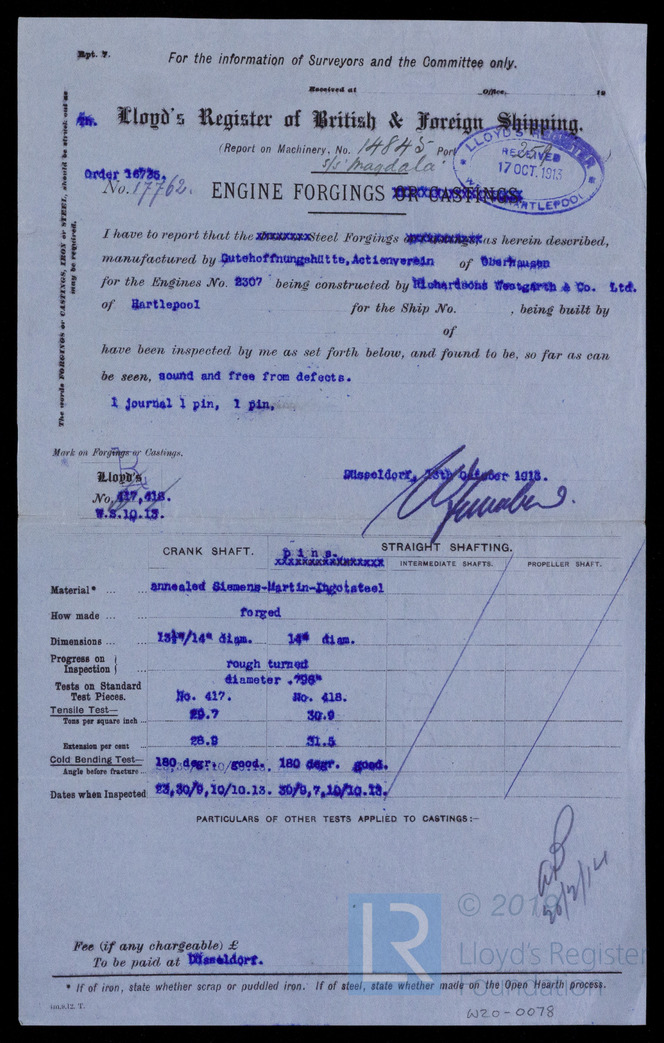 Rpt. 7.
For the information of Surveyors and the Committee only.
Received at Office, 19
Lloyd's Register of British & Foreign Shipping.
(Report on Machinery, No. 14845 Port
S/S "Magdala"
LLOYD'S REGISTER
RECEIVED
17 OCT. 1913
HARTLEPOOL
Order 16725.
No. 17762.
ENGINE FORGINGS OR CASTINGS.
The words FORGINGS or CASTINGS, IRON or STEEL, should be struck out as
may be required.
I have to report that the Steel Forgings as herein described,
manufactured by Gutehoffnungshütte, Actienverein of Oberhausen
for the Engines No. 2307 being constructed by Richardsons Westgarth & Co. Ltd.
of Hartlepool for the Ship No. , being built by
of
have been inspected by me as set forth below, and found to be, so far as can
be seen, sound and free from defects.
1 journal 1 pin, 1 pin,
Mark on Forgings or Castings.
Lloyd's
No. 417,418.
W.S.10.13.
Düsseldorf, 13th October 1913.
CRANK SHAFT. pins. STRAIGHT SHAFTING.
INTERMEDIATE SHAFTS. PROPELLER SHAFT.
Material* annealed Siemens-Martin-Ingotsteel
How made forged
Dimensions 13¾"/14" diam. 14" diam.
Progress on Inspection rough turned
diameter .798"
Tests on Standard Test Pieces. No. 417. No. 418.
Tensile Test—
Tons per square inch 29.7 30.9
Extension per cent 28.9 31.5
Cold Bending Test—
Angle before fracture 180 degr. good. 180 degr. good.
Dates when Inspected 23,30/9,10/10.13. 30/9,7,10/10.13.
PARTICULARS OF OTHER TESTS APPLIED TO CASTINGS:-
26/2/14
Fee (if any chargeable) £
To be paid at Düsseldorf.
* If of iron, state whether scrap or puddled iron. If of steel, state whether made on the Open Hearth process.
LR
Lloyd's Register
Foundation
W20-0078